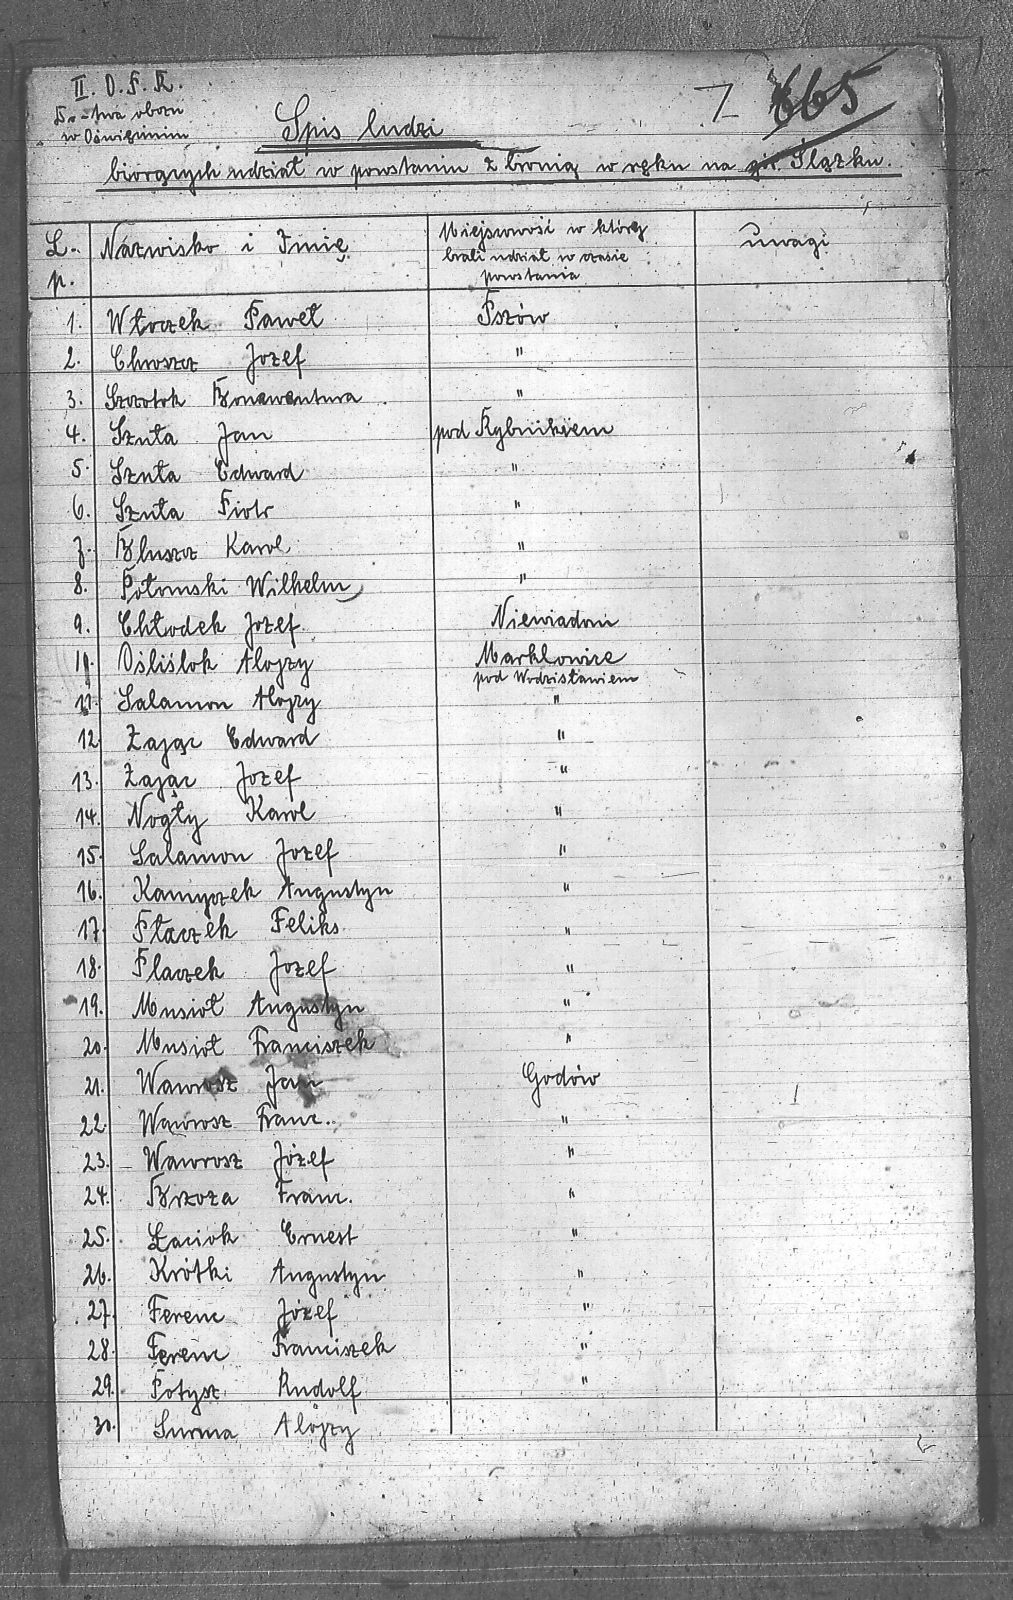 II. O. F. K.
665
D.-twa obozu
w Oświęcimiu
Spis ludzi
biorących udział w powstaniu z bronią w ręku na gór. Śląsku.
L. p.
Nazwisko i Imię
Miejscowość w której
brali udział w czasie
powstania
uwagi
1. Włoczek Paweł Pszów
2. Chroszcz Jozef "
3. Szczotok Bonawentura "
4. Szuła Jan pod Rybnikiem
5. Szuła Edward "
6. Szuła Piotr "
7. Bluszcz Karol "
8. Połomski Wilhelm "
9. Chłodek Jozef Niewiadom
10. Oślislok Alojzy Marklowice
pod Wodzisławiem
11. Salamon Alojzy "
12. Zając Edward "
13. Zając Jozef "
14. Nogły Karol "
15. Salamon Jozef "
16. Kamyczek Augustyn "
17. Płaczek Feliks "
18. Płaczek Jozef "
19. Musioł Augustyn "
20. Musioł Franciszek "
21. Wawrosz Jan Godów
22. Wawrosz Franc. "
23. Wawrosz Józef "
24. Brzoza Franc. "
25. Łaciok Ernest "
26. Krótki Augustyn "
27. Ferenc Józef "
28. Ferenc Franciszek "
29. Potysz Rudolf "
30. Surma Alojzy